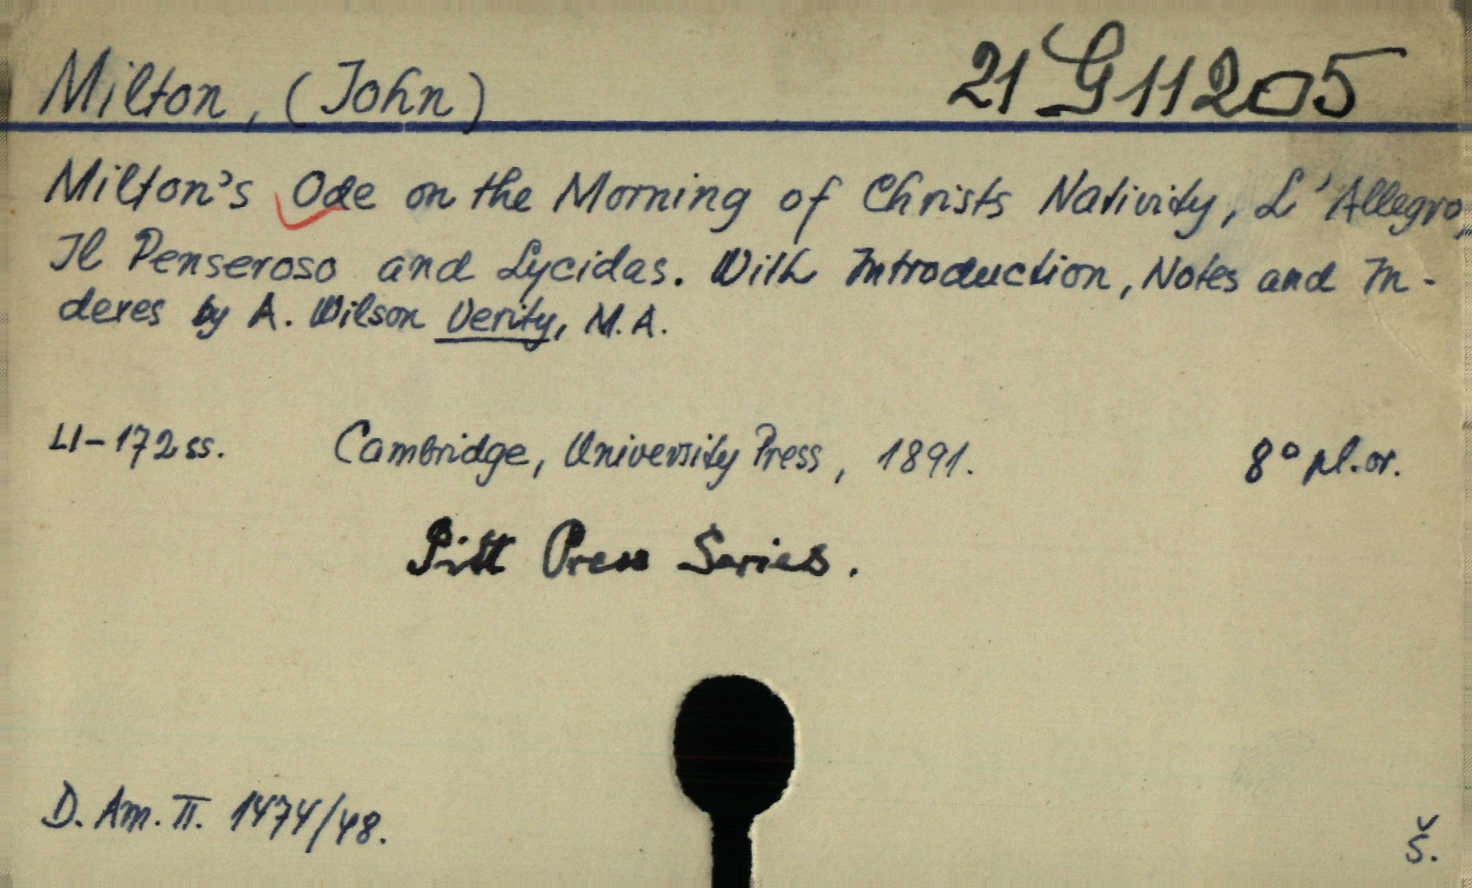 Milton, (John) 21 G 11205
Milton's Ode on the Morning of Christs Nativity, L'Allegro,
Il Penseroso and Lycidas. With Introduction, Notes and In-
dexes by A. Wilson Verity, M.A.
LI-172 ss. Cambridge, University Press, 1891. 8° pl. or.
Pitt Press Series.
D. Am. II. 1474/48. Š.